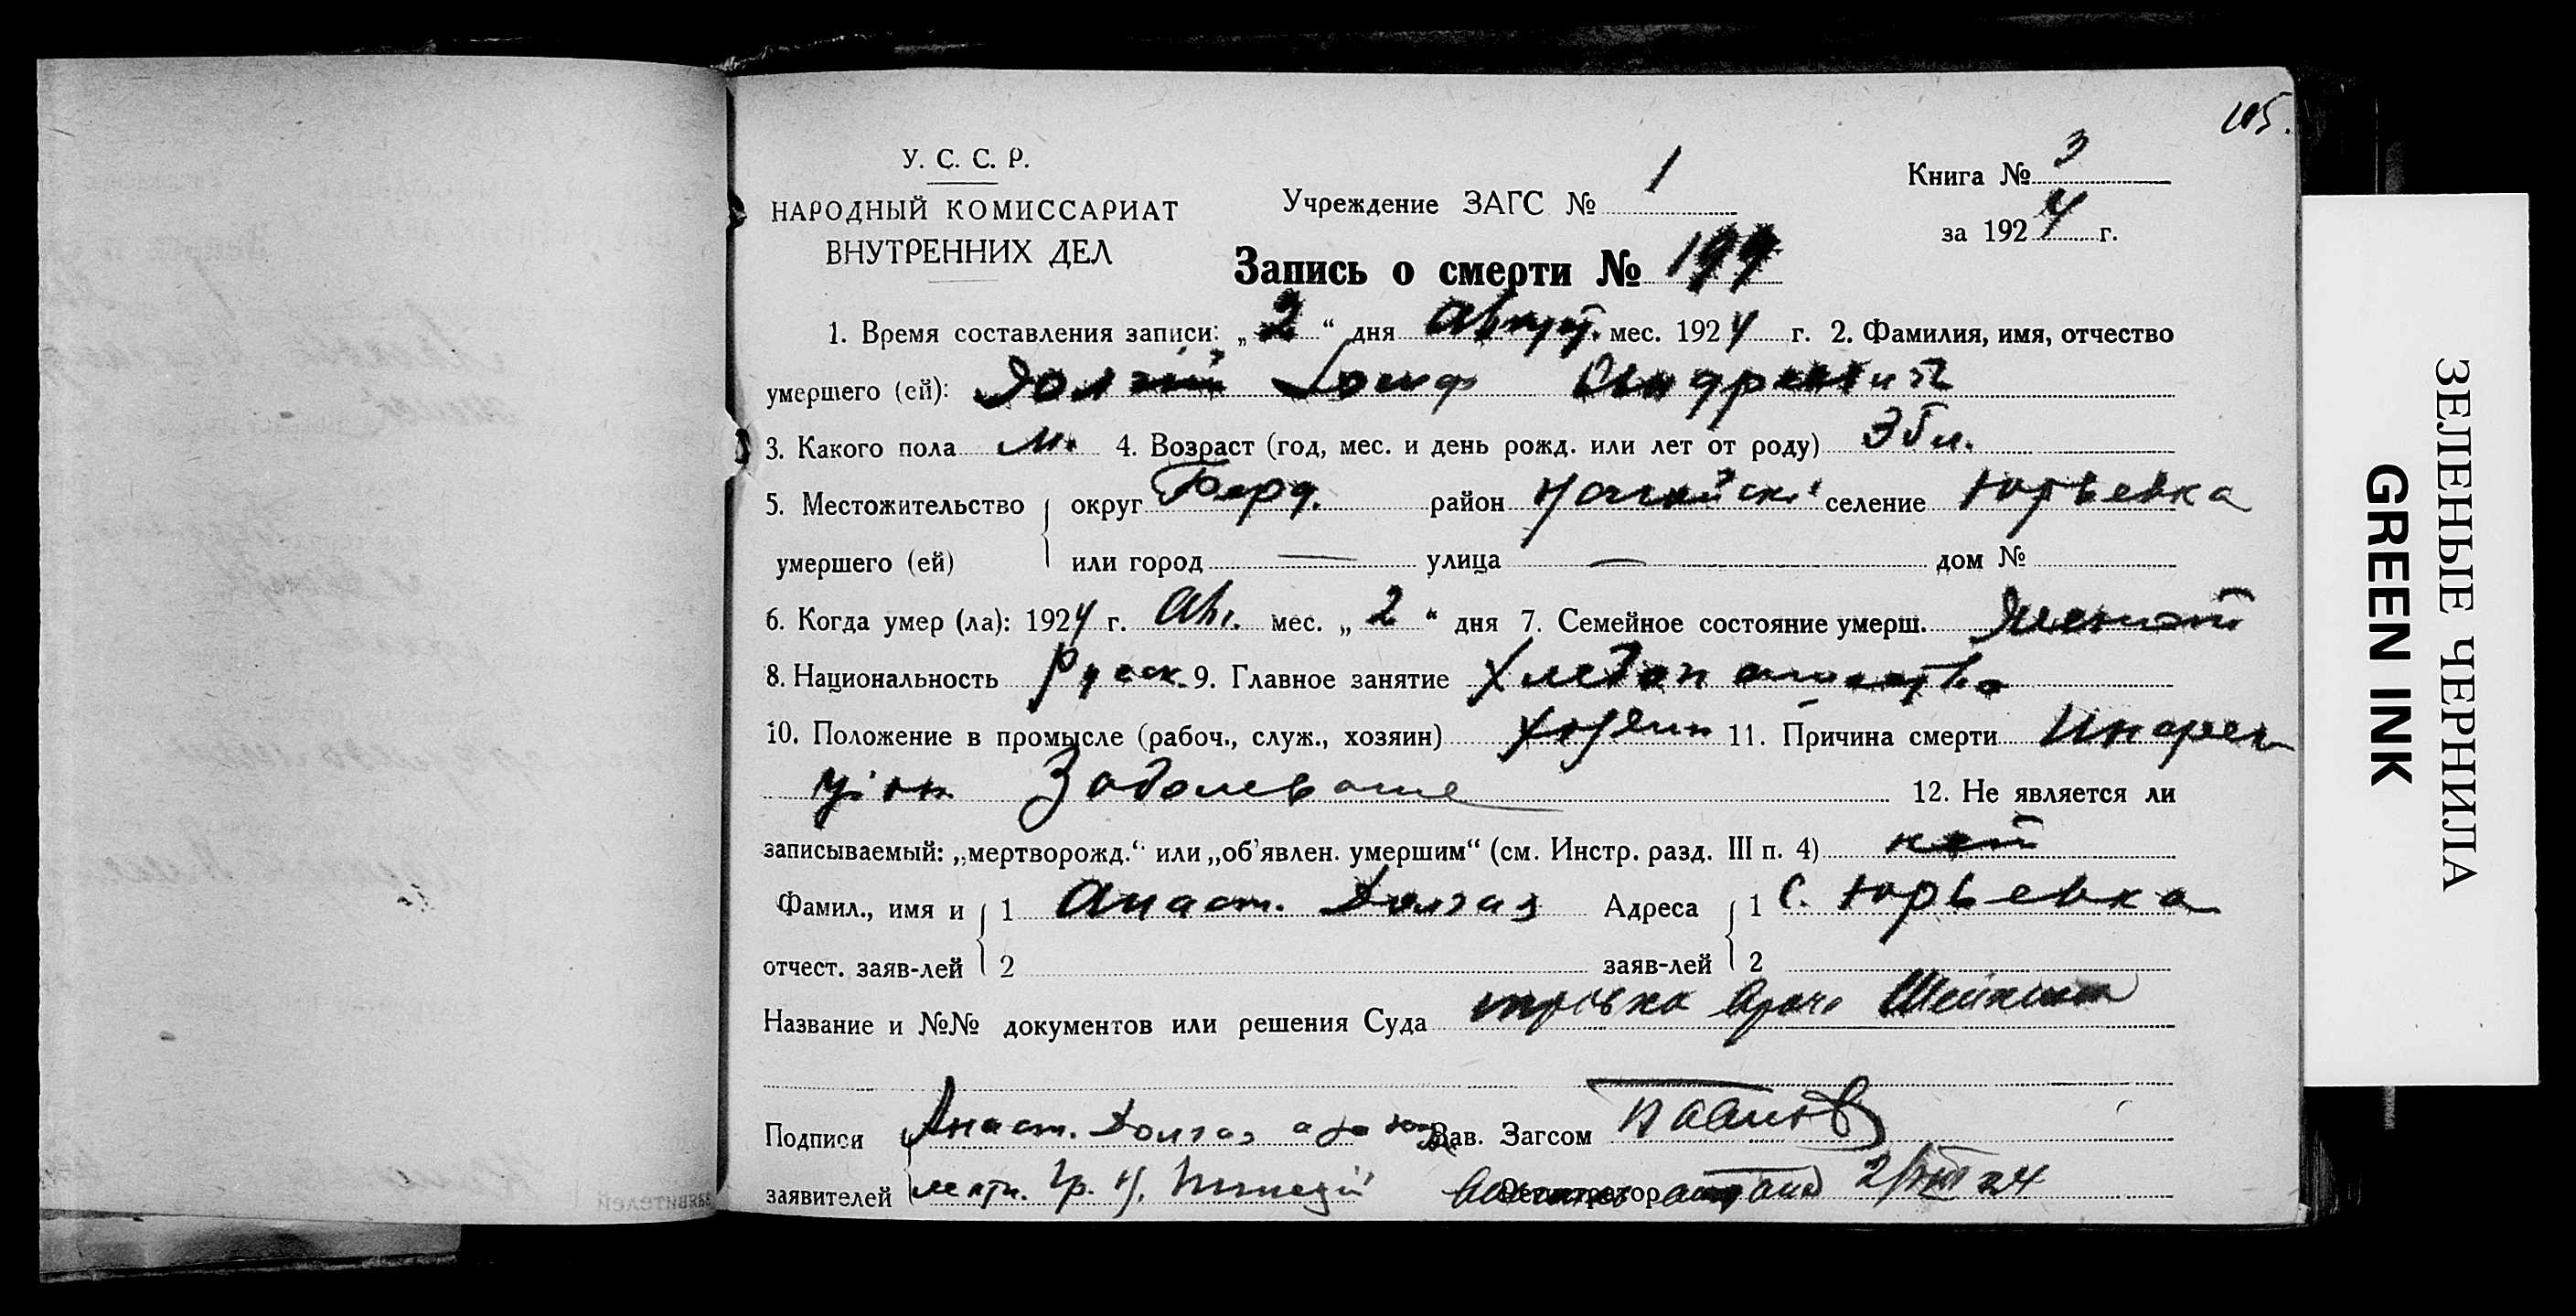 105.
У. С. С. Р.
НАРОДНЫЙ КОМИССАРИАТ
ВНУТРЕННИХ ДЕЛ
Учреждение ЗАГС № 1
Книга № 3
за 1924 г.
Запись о смерти № 199
1. Время составления записи: „2“ дня мес. 1924 г. 2. Фамилия, имя, отчество
умершего (ей):
3. Какого пола м. 4. Возраст (год, мес. и день рожд. или лет от роду) 35 л.
5. Местожительство округ Берд. район селение Юрьевка
умершего (ей) или город — улица — дом №
6. Когда умер (ла): 1924 г. Ав. мес. „2“ дня 7. Семейное состояние умерш. Женат
8. Национальность Русск. 9. Главное занятие Хлебопашество
10. Положение в промысле (рабоч., служ., хозяин) Хозяин 11. Причина смерти Инфек
ціон Заболевание 12. Не является ли
записываемый: „мертворожд.“ или „об’явлен. умершим“ (см. Инстр. разд. III п. 4) нет
Фамил., имя и 1 Анаст. Долгая Адреса 1 С. Юрьевка
отчест. заяв-лей 2 заяв-лей 2
Название и №№ документов или решения Суда врача
Подписи Анаст. Долгая Зав. Загсом
заявителей Регистратор 2/VIII 24
ЗЕЛЕНЫЕ ЧЕРНИЛА
GREEN INK